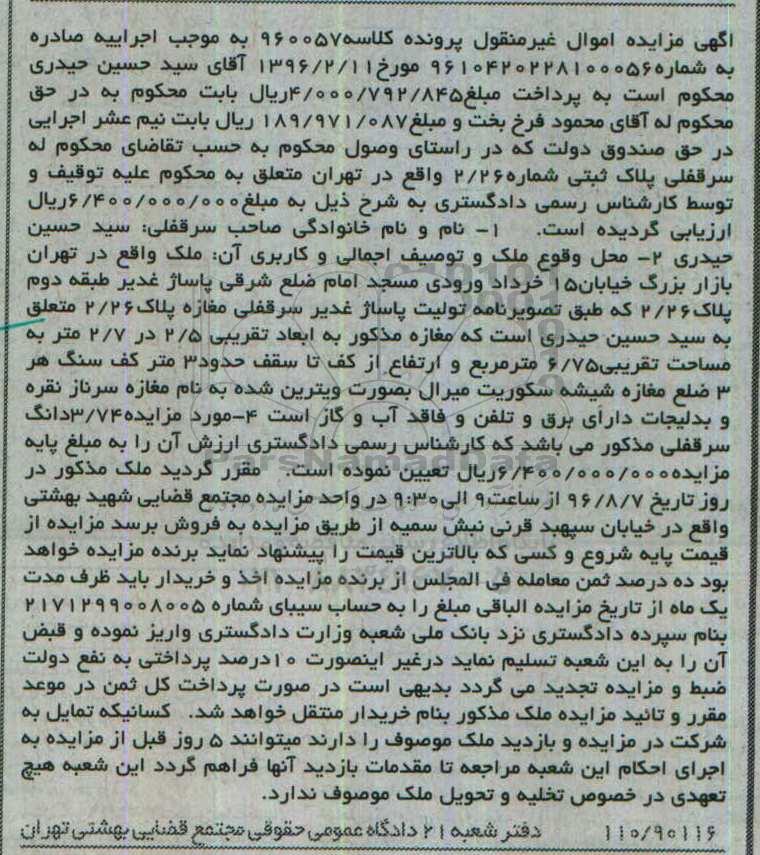 اگهی مزایده اموال غیرمنقول پرونده کلاسه۹۶۰۰۵۷ به موجب اجراییه صادره
به شماره۹۶۱۰۴۲۰۲۲۸۱۰۰۰۵۶ مورخ۱۳۹۶/۲/۱۱ آقای سید حسین حیدری
محکوم است به پرداخت مبلغ۴/۰۰۰/۷۹۲/۸۴۵ریال بابت محکوم به در حق
محکوم له آقای محمود فرخ بخت و مبلغ۱۸۹/۹۷۱/۰۸۷ ریال بابت نیم عشر اجرایی
در حق صندوق دولت که در راستای وصول محکوم به حسب تقاضای محکوم له
سرقفلی پلاک ثبتی شماره۲/۲۶ واقع در تهران متعلق به محکوم علیه توقیف و
توسط کارشناس رسمی دادگستری به شرح ذیل به مبلغ۶/۴۰۰/۰۰۰/۰۰۰ریال
ارزیابی گردیده است. ۱- نام و نام خانوادگی صاحب سرقفلی: سید حسین
حیدری ۲- محل وقوع ملک و توصیف اجمالی و کاربری آن: ملک واقع در تهران
بازار بزرگ خیابان۱۵ خرداد ورودی مسجد امام ضلع شرقی پاساژ غدیر طبقه دوم
پلاک۲/۲۶ که طبق تصویرنامه تولیت پاساژ غدیر سرقفلی مغازه پلاک۲/۲۶ متعلق
به سید حسین حیدری است که مغازه مذکور به ابعاد تقریبی ۲/۵ در ۲/۷ متر به
مساحت تقریبی۶/۷۵ مترمربع و ارتفاع از کف تا سقف حدود۳ متر کف سنگ هر
۳ ضلع مغازه شیشه سکوریت میرال بصورت ویترین شده به نام مغازه سرناز نقره
و بدلیجات دارای برق و تلفن و فاقد آب و گاز است ۴-مورد مزایده۳/۷۴دانگ
سرقفلی مذکور می باشد که کارشناس رسمی دادگستری ارزش آن را به مبلغ پایه
مزایده۶/۴۰۰/۰۰۰/۰۰۰ریال تعیین نموده است. مقرر گردید ملک مذکور در
روز تاریخ ۹۶/۸/۷ از ساعت۹ الی۹:۳۰ در واحد مزایده مجتمع قضایی شهید بهشتی
واقع در خیابان سپهبد قرنی نبش سمیه از طریق مزایده به فروش برسد مزایده از
قیمت پایه شروع و کسی که بالاترین قیمت را پیشنهاد نماید برنده مزایده خواهد
بود ده درصد ثمن معامله فی المجلس از برنده مزایده اخذ و خریدار باید ظرف مدت
یک ماه از تاریخ مزایده الباقی مبلغ را به حساب سیبای شماره ۲۱۷۱۲۹۹۰۰۸۰۰۵
بنام سپرده دادگستری نزد بانک ملی شعبه وزارت دادگستری واریز نموده و قبض
آن را به این شعبه تسلیم نماید درغیر اینصورت ۱۰درصد پرداختی به نفع دولت
ضبط و مزایده تجدید می گردد بدیهی است در صورت پرداخت کل ثمن در موعد
مقرر و تائید مزایده ملک مذکور بنام خریدار منتقل خواهد شد. کسانیکه تمایل به
شرکت در مزایده و بازدید ملک موصوف را دارند میتوانند ۵ روز قبل از مزایده به
اجرای احکام این شعبه مراجعه تا مقدمات بازدید آنها فراهم گردد این شعبه هیچ
تعهدی در خصوص تخلیه و تحویل ملک موصوف ندارد.
۱۱۰/۹۰۱۱۶ دفتر شعبه ۲۱ دادگاه عمومی حقوقی مجتمع قضایی بهشتی تهران
ParsNamadData